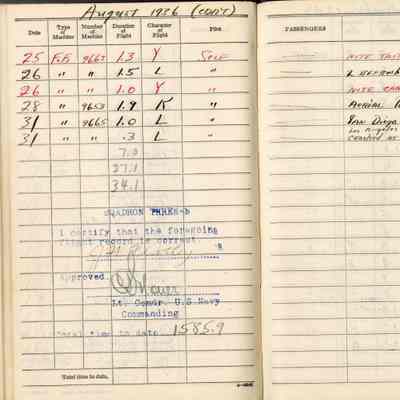 August 1936 (CONT)
Date Type of Machine Number of Machine Duration of Flight Character of Flight Pilot PASSENGERS
25 F.F. 9667 1.3 Y Self NITE
26 " " 1.5 L "
26 " " 1.0 Y " NITE
28 " 9653 1.9 K "
31 " 9665 1.0 L " San Diego
31 " " .3 L " Los Angeles
7.0
27.1
34.1
I certify that the foregoing
flight record is correct.
Approved.
Lt. Comdr. U.S. Navy
Commanding
Total time to date 1585.9
Total time to date,